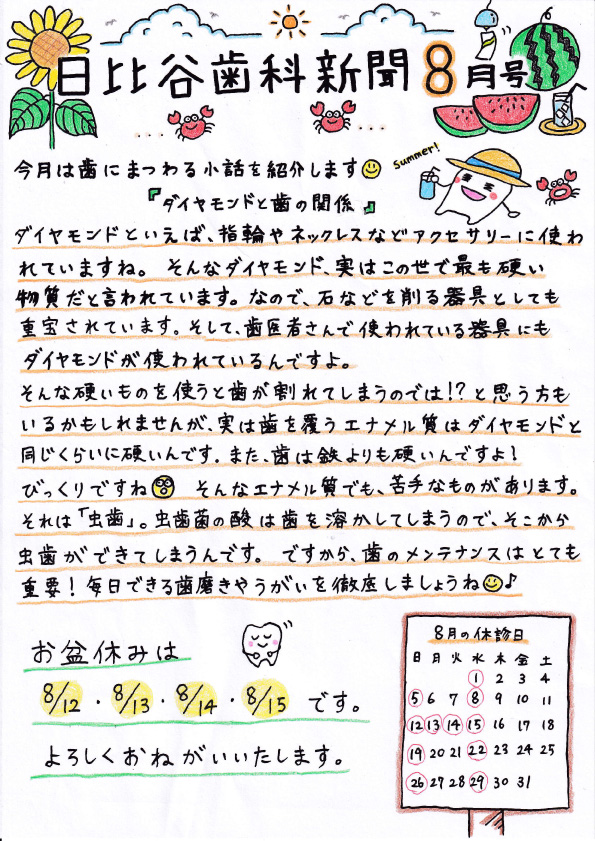 日比谷歯科新聞8月号
今月は歯にまつわる小話を紹介します
Summer!
『ダイヤモンドと歯の関係』
ダイヤモンドといえば、指輪やネックレスなどアクセサリーに使わ
れていますね。そんなダイヤモンド、実はこの世で最も硬い
物質だと言われています。なので、石などを削る器具としても
重宝されています。そして、歯医者さんで使われている器具にも
ダイヤモンドが使われているんですよ。
そんな硬いものを使うと歯が割れてしまうのでは!?と思う方も
いるかもしれませんが、実は歯を覆うエナメル質はダイヤモンドと
同じくらいに硬いんです。また、歯は鉄よりも硬いんですよ!
びっくりですね そんなエナメル質でも、苦手なものがあります。
それは「虫歯」。虫歯菌の酸は歯を溶かしてしまうので、そこから
虫歯ができてしまうんです。ですから、歯のメンテナンスはとても
重要!毎日できる歯磨きやうがいを徹底しましょうね♪
お盆休みは
8/12・8/13・8/14・8/15です。
よろしくおねがいいたします。
8月の休診日
日 月 火 水 木 金 土
1 2 3 4
5 6 7 8 9 10 11
12 13 14 15 16 17 18
19 20 21 22 23 24 25
26 27 28 29 30 31